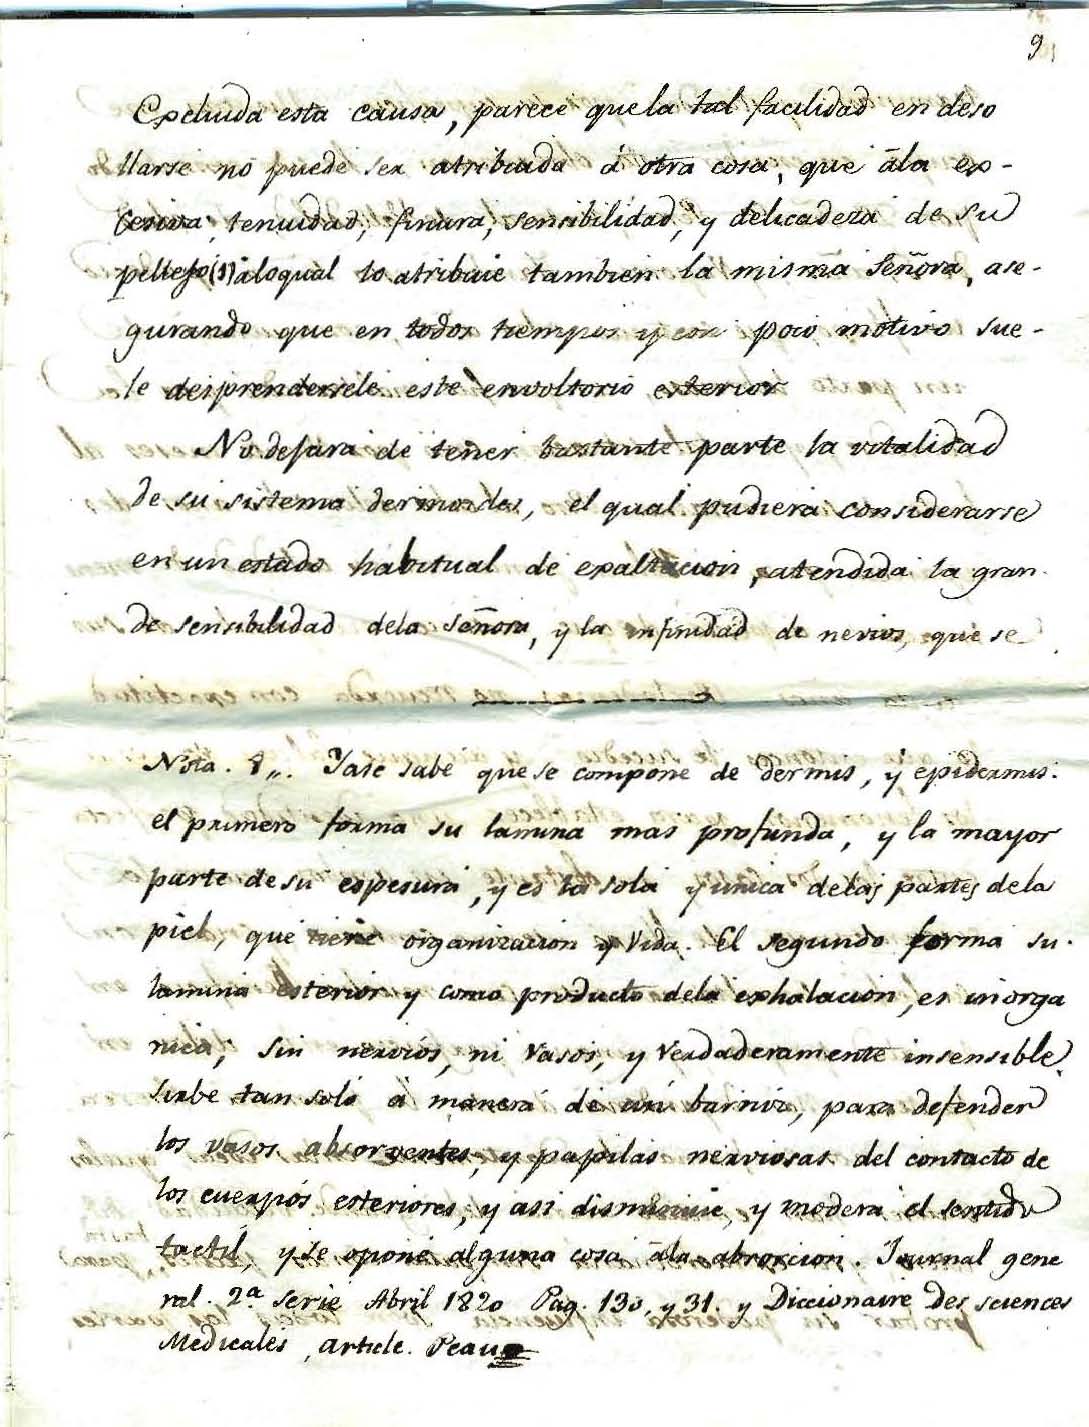 9
Excluida esta causa, parece que la tal facilidad en deso
llarse no puede ser atribuida á otra cosa, que ála ex-
cesiva tenuidad, finura, sensibilidad, y delicadeza de su
pellejo (1) áloqual lo atribuie tambien la misma Señora, ase-
gurando que en todos tiempos y con poco motivo sue-
le desprendersele este envoltorio exterior
No dejara de tener bastante parte la vitalidad
de su sistema dermoides, el qual pudiera considerarse
en un estado habitual de exaltacion, atendida la gran
de sensibilidad dela Señora, y la infinidad de nervios, que se
Nota. 1,,. Yase sabe que se compone de dermis, y epidermis:
el primero forma su lamina mas profunda, y la mayor
parte de su espesura, y es la sola y unica delas partes dela
piel, que tiene organizacion y vida. El segundo forma su
lamina esterior y como producto dela exhalacion, es inorga
nica, sin nervios, ni vasos, y verdaderamente insensible.
Sirbe tan solo á manera de un barniz, para defender
los vasos absorventes, y papilas nerviosas del contacto de
los cuerpos esteriores, y asi disminuie, y modera el sentido
tactil, y se opone alguna cosa ála abrorcion. Journal gene
ral. 2.ª serie Abril 1820 Pag. 130, y 31. y Diccionaire Des sciences
Medicales, article. Peau